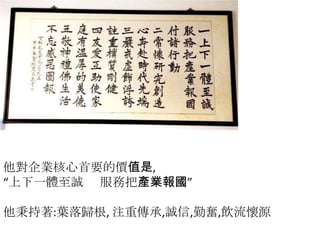 一上下一體至誠
服務把產業報國
付諸行動
二常保研究創造
心奔赴時代先端
三嚴戒虛飾浮誇
註重樸質剛健
四友愛互助使家
庭有溫厚的美德
五敬神禮佛生活
不忘感恩圖報
他對企業核心首要的價值是,
“上下一體至誠 服務把產業報國”
他秉持著:葉落歸根, 注重傳承,誠信,勤奮,飲流懷源